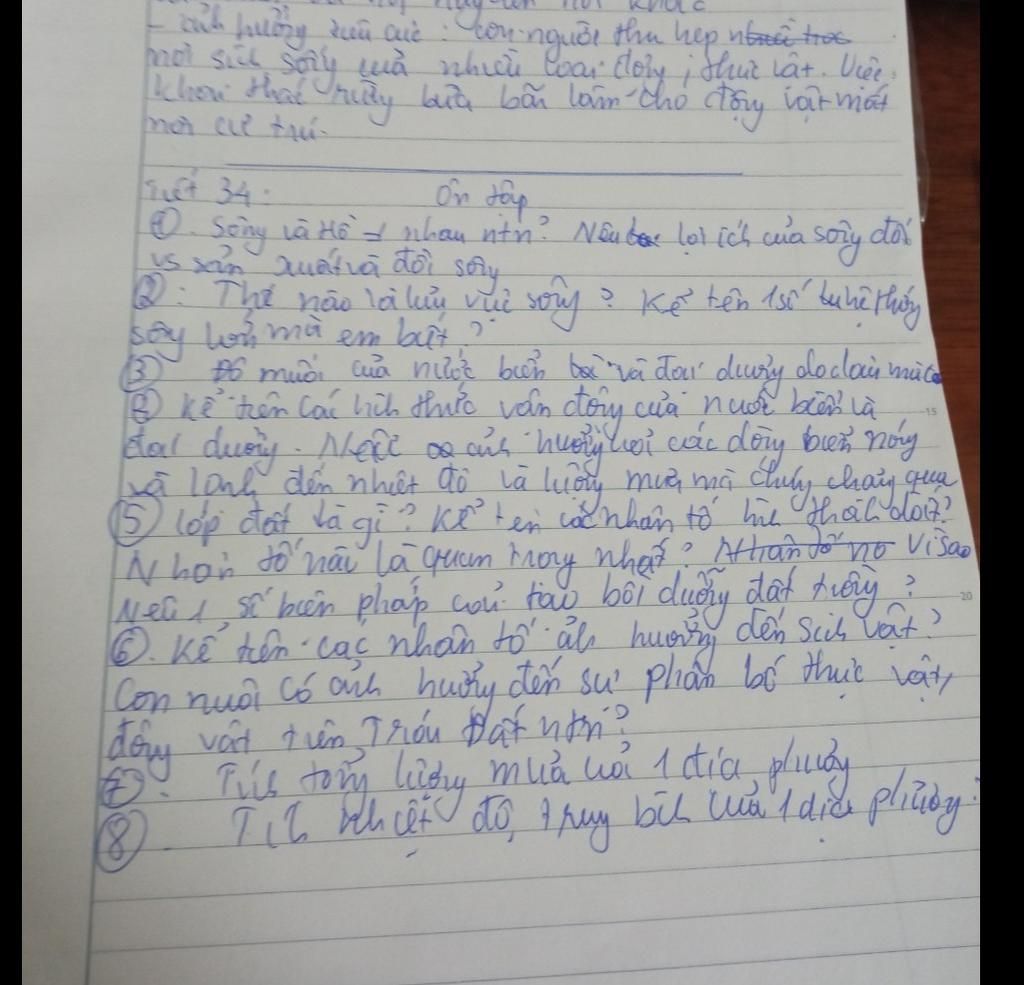 - ảnh hưởng tiêu cực: con người thu hẹp
nơi sinh sống của nhiều loài động, thực vật. Việc
khai thác rừng bừa bãi làm cho động vật mất
nơi cư trú.
Tiết 34: Ôn tập
①. Sông và Hồ ≠ nhau ntn? Nêu lợi ích của sông đối
vs sản xuất và đời sống
②: Thế nào là lưu vực sông? Kể tên 1 số hệ thống
sông lớn mà em biết?
③ Độ muối của nước biển và đại dương do đâu mà có
④ Kể tên các hình thức vận động của nước biển và
đại dương. Nêu ảnh hưởng các dòng biển nóng
và lạnh đến nhiệt độ và lượng mưa mà chúng chảy qua
⑤ lớp đất là gì? Kể tên các nhân tố hình thành đất?
Nhân tố nào là quan trọng nhất? Vì sao
Nêu 1 số biện pháp cải tạo bồi dưỡng đất trồng?
⑥. Kể tên các nhân tố ảh hưởng đến sinh vật?
Con người có ảnh hưởng đến sự phân bố thực vật,
động vật trên Trái Đất ntn?
⑦. Tính tổng lượng mưa của 1 địa phương
⑧. Tính nhiệt độ trung bình của 1 địa phương.